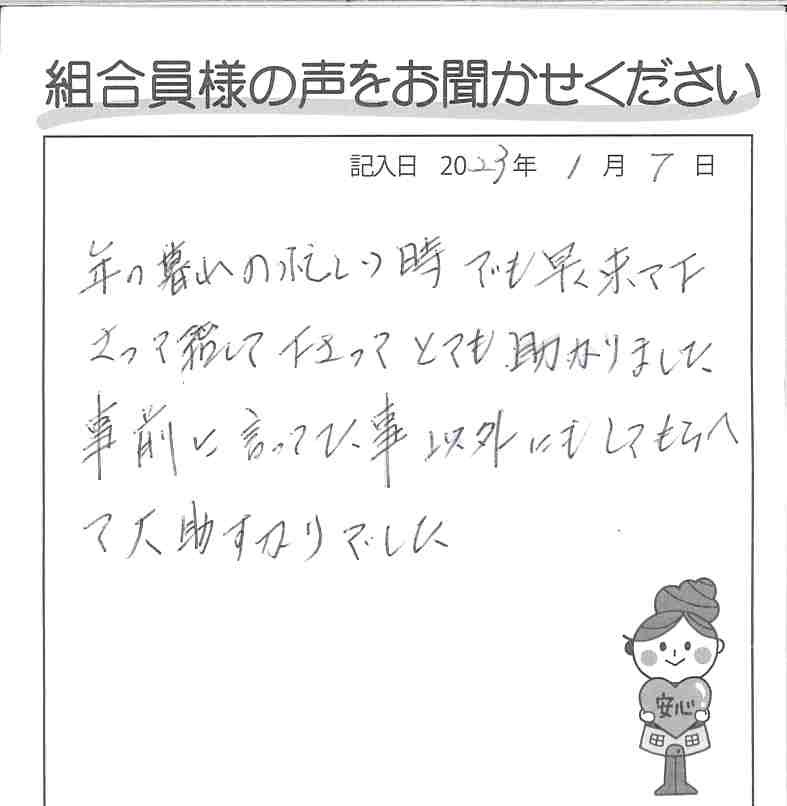 組合員様の声をお聞かせください
記入日 2023年 1月 7日
年の暮れの忙しい時でも早く来て下
さって 下さって とても助かりました
事前に言ってた事以外にもしてもらへ
て大助すかりでした
安心